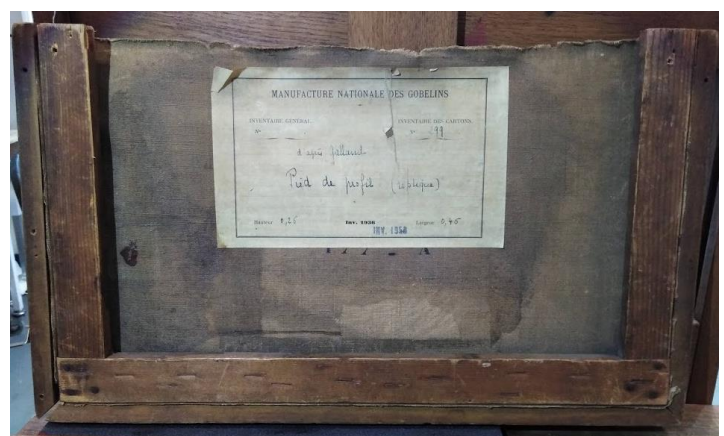 MANUFACTURE NATIONALE DES GOBELINS
INVENTAIRE GÉNÉRAL
INVENTAIRE DES CARTONS
N°
N° 99
d'après Galland
Pied de profil (réplique)
Hauteur 0,26
Inv. 1936
Largeur 0,46
INV. 1958